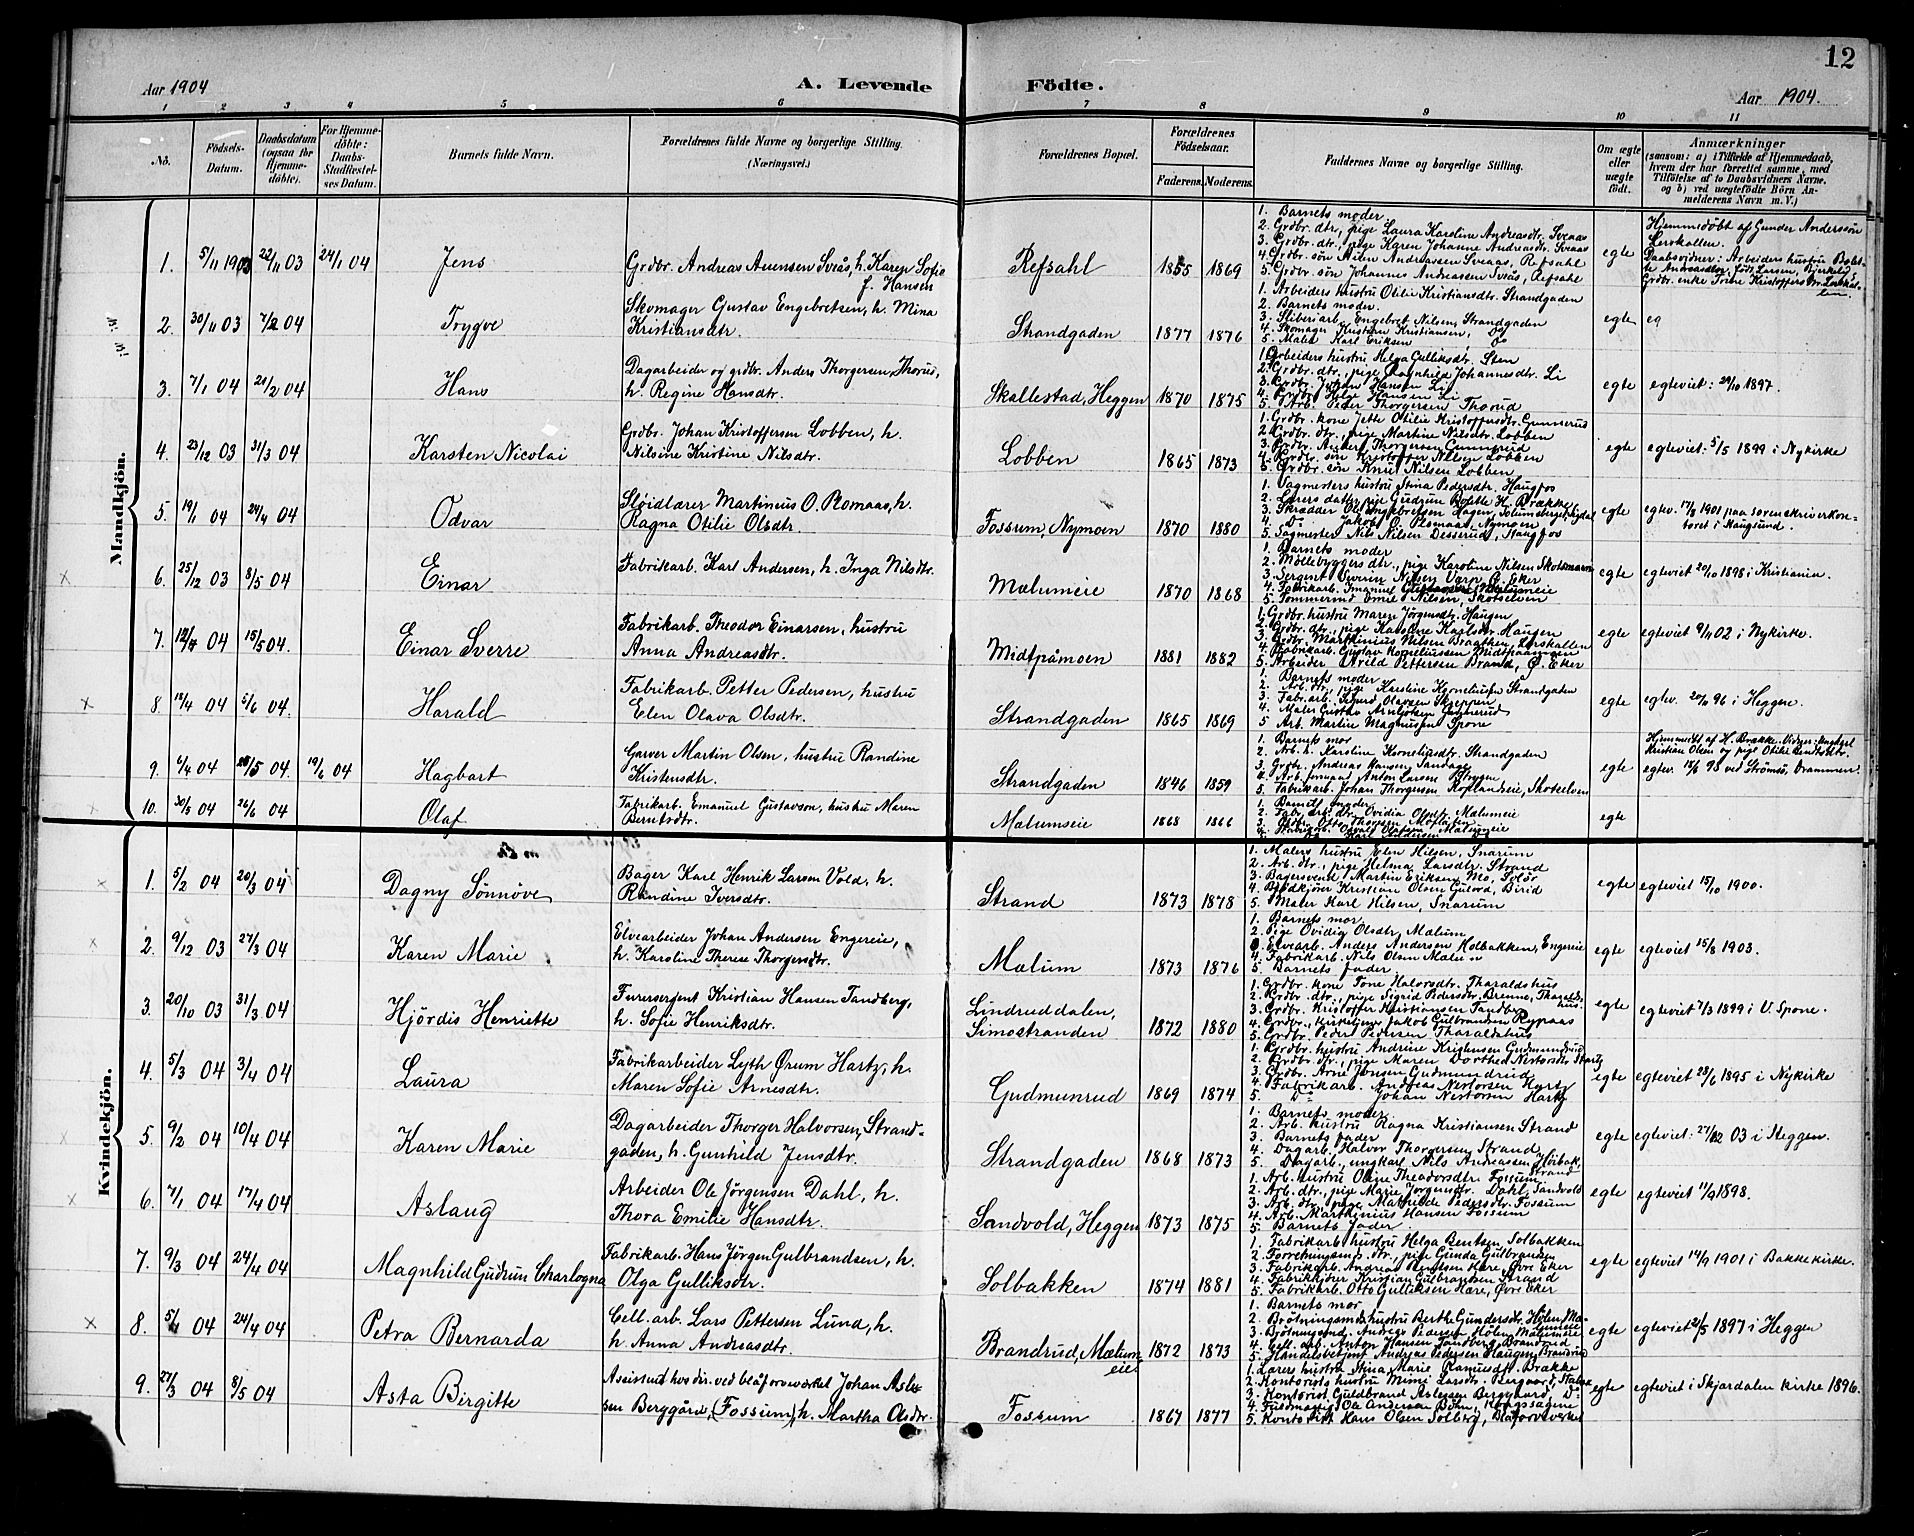 12
Aar 1904
A. Levende
Födte.
Aar 1904.
1 2 3 4 5 6 7 8 9 10 11
No.
Födsels-
Datum.
Daabsdatum
(ogsaa for
Hjemme-
döbte).
For Hjemme-
döbte:
Daabs-
Stadfæstel-
ses Datum.
Barnets fulde Navn.
Forældrenes fulde Navne og borgerlige Stilling
(Næringsvei.)
Forældrenes Bopæl.
Forældrenes
Födselsaar.
Faderens. Moderens.
Faddernes Navne og borgerlige Stilling.
Om ægte
eller
uægte
födt.
Anmærkninger
(saasom: a) i Tilfælde af Hjemmedaab,
hvem der har forrettet samme, med
Tilföielse af to Daabsvidners Navne,
og b) ved uægtefödte Börn An-
melderens Navn m. V.)
Mandkjön.
1. 5/11 1903 22/11 03 24/1 04 Jens
Grdbr. Andreas Auensen Sveås, h. Karen Sofie
f. Hansen
Refsahl 1855 1869
1. Barnets moder
2. Grdbr. dtr., pige Laura Karoline Andreasdtr. Sveaas
3. Grdbr. dtr., pige Karen Johanne Andreasdtr. Sveaas
4. Grdbr. sön Nilen Andreassen Sveaas, Refsahl
5. Grdbr. sön Johannes Andreassen Sveås, Refsahl
egte
Hjemmedöbt af Gunder Anderssön
Lerskallen.
Daabsvidner: Arbeiders hustru Bolet-
te Andreasdtr. född Larsen, Bjerkelid
2. 30/11 03 7/2 04 Trygve
Skomager Gustav Engebretsen, h. Mina
Kristiansdtr.
Strandgaden 1877 1876
1. Arbeiders hustru Otilie Kristiansdtr. Strandgaden
2. Barnets moder.
3. Sliberiarb. Engebret Nilsen, Strandgaden
4. Skomager Kristian Kristiansen, Do
5. Maler Karl Eriksen Do
egte eg
3. 7/1 04 21/2 04 Hans
Dagarbeider og grdbr. Anders Thorgersen, Thorud,
h. Regine Hansdtr.
Skallestad, Heggen 1870 1875
1. Arbeiders hustru Helga Gulliksdtr. Sten
2. Grdbr. dtr., pige Ragnhild Johannesdtr. Li
3. Grdbr. Johan Hansen Li
4. Grdbr. Helge Hansen Li
5. Arb. Peder Thorgersen Thorud
egte egteviet: 29/10 1897.
4. 23/12 03 31/3 04 Karsten Nicolai
Grdbr. Johan Kristoffersen Lobben, h.
Nilsine Kristine Nilsdtr.
Lobben 1865 1873
1. Grdbr. kone Jette Otilie Kristoffersdtr. Gunnerud
2. Grdbr. dtr., pige Martine Nilsdtr. Lobben
3. Grdbr. Anders Thorgersen Gunnerud
4. Grdbr. sön Kristoffer Nilsen Lobben
5. Grdbr. sön Knut Nilsen Lobben
egte egteviet: 5/5 1899 i Nykirke
5. 19/1 04 24/4 04 Odvar
Slöidlærer Martinius O. Romaas, h.
Ragna Otilie Olsdtr.
Fossum, Nymoen 1870 1880
1. Sagmesters hustru Stina Pedersdtr. Haugfos
2. Lærers datter, pige Gudrun Bolette H. Brække
3. Skrædder Ole Engebretsen Hagen
4. Do Jakob O. Romaas, Nymoen
5. Sagmester Nils Nilsen Desserud, Haugfos
egte egtev. 17/8 1901 paa sorenskriverkon-
toret i Haugsund.
6. 25/12 03 8/5 04 Einar
Fabrikarb. Karl Andersen, h. Inga Nilsdtr.
Mælumeie 1870 1868
1. Barnets moder
2. Möllebyggers dtr., pige Karoline Nilsen Skotsmoen
3. Sergent Severin Nilsen Varp Ø. Eker
4. Fabrikarb. Emanuel Gustavsen, Mælumeie
5. Tömmermd Emil Nilsen, Skotselven
egte egteviet 20/10 1898 i Kristiania.
7. 12/4 04 15/5 04. Einar Sverre
Fabrikarb. Theodor Einarsen, hustru
Anna Andreasdtr.
Midtpåmoen 1881 1882
1. Grdbr. hustru Maren Jörgensdtr. Haugen
2. Grdbr. dtr., pige Karoline Karlsdtr. Haugen
3. Grdbr. Marthinius Nilsen Braathen, Lerskallen
4. Fabrikarb. Gustav Korneliussen Midtpaamoen
5. Arbeider Arild Pettersen Brand, Ø. Eker
egte egteviet 9/11 02 i Nykirke.
8. 13/4 04 5/6 04. Harald
Fabrikarb. Petter Pedersen, hustru
Elen Olava Olsdtr.
Strandgaden 1865 1869
1. Barnets moder
2. Arb. dtr., pige Karoline Korneliusen Strandgaden
3. Fab. arb. Sigurd Olavsen Skreppen
5. Arb. Martin Magnusen Spone
egte egtev. 20/11 96 i Heggen.
9. 6/4 04 28/5 04. 19/6 04 Hagbart
Garver Martin Olsen, hustru Randine
Kristensdtr.
Strandgaden 1846 1859
1. Barnets mor
2. Arb. h. Karoline Korneliusdtr. Strandgaden
3. Grdbr. Andreas Hansen Sandaas
4. Arb. formand Anton Larsen Bryggen
5. Fabrikarb. Johan Thorgersen Koplandeie, Skotselven
egte
Hjemmedöbt af H. Brække. Vidner:
Kristian Olsen og pige Otilie
egtev. 18/6 98 ved Strömsö, Drammen.
10. 30/3 04 26/6 04 Olaf
Fabrikarb. Emanuel Gustavson, hustru Maren
Berntsdtr.
Mælumseie 1868 1866
1. Barnets moder
2. Fab. arb. dtr. Ovidia Olsdtr. Mælumeie
egte
Kvindekjön.
1. 5/2 04 20/3 04 Dagny Sönnöve
Bager Karl Henrik Larsen Vold, h.
Randine Iversdtr.
Strand 1873 1878
1. Malers hustru Elen Nilsen, Snarum
2. Arb. dtr., pige Helma Larsdtr. Strand
3. Bagersvend Martin Eriksen Mo, Solör
4. Brödkjörer Kristian Olsen Gulord, Birid
5. Maler Karl Nilsen, Snarum
egte egteviet 15/10 1900.
2. 9/12 03 27/3 04 Karen Marie
Elvearbeider Johan Andersen Engereie,
h. Karoline Therese Thorgersdtr.
Mælum 1873 1876
1. Barnets mor
2. Pige Ovidia Olsdtr. Mælum
3. Elvearb. Anders Andersen Holbakken, Engereie
4. Fabrikarb. Nils Olsen Mælum
5. Barnets fader
egte egteviet 15/8 1903.
3. 20/10 03 31/3 04 Hjördis Henriette
Furersergent Kristian Hansen Tandberg,
h. Sofie Henriksdtr.
Lindruddalen,
Simostranden 1872 1880
1. Grdbr. kone Tone Halvorsdtr. Tharaldshus
2. Grdbr. dtr., pige Sigrid Pedersdtr. Brenne, Tharalds-
hus.
3. Grdbr. Kristoffer Kristiansen Tandberg
4. Grdbr., kirketjener Jakob Gulbrandsen Rypaas
5. Grdbr. Peder Pedersen Tharaldshus
egte egteviet 7/3 1899 i V. Spone.
4. 5/3 04 3/4 04 Laura
Fabrikarbeider Lyth Ørum Hartz, h.
Maren Sofie Arnesdtr.
Gudmunrud 1869 1874
1. Grdbr. hustru Andrine Kristensen Gudmundrud
2. Grdbr. dtr., pige Maren Dorthea Nestorsdtr. Hartz
3. Grdbr. Arne Jonsen Gudmundrud
4. Fabrikarb. Andreas Nestorsen Hartz
5. Do Johan Nestorsen Hartz
egte egteviet 28/6 1895 i Nykirke
5. 9/2 04 10/4 04 Karen Marie
Dagarbeider Thorger Halvorsen, Strand-
gaden, h. Gunhild Jensdtr.
Strandgaden 1868 1873
1. Barnets moder
2. Arb. hustru Ragna Kristiansen Strand
3. Barnets fader
4. Dagarb. Halvor Thorgersen Strand
5. Dagarb., ungkarl Nils Andreassen Höibak,
Strand
egte egteviet: 27/12 03 i Heggen.
6. 7/1 04 17/4 04 Aslaug
Arbeider Ole Jörgensen Dahl, h.
Thora Emilie Hansdtr.
Sandvold, Heggen 1873 1875
1. Arb. hustru Oline Theodorsdtr. Fossum
2. Arb. dtr., pige Marie Jörgensdtr. Dahl, Sandvold
3. Arb. dtr., pige Mathilde Pedersdtr. Fossum
4. Arb. Marthinius Hansen Fossum
5. Barnets fader.
egte egteviet 11/9 1898.
7. 9/3 04 24/4 04 Magnhild Gudrun Charlogna
Fabrikarb. Hans Jörgen Gulbrandsen, h.
Olga Gulliksdtr.
Solbakken 1874 1881
1. Fabrikarb. hustru Helga Bentsen Solbakken
2. Forretningsmd. dtr., pige Gunda Gulbrandsen
3. Fabrikarb. Andreas Bentsen Hære, Øvre Eker
4. Fabrikkjörer Kristian Gulbrandsen Strand
5. Fabrikarb. Otto Gulliksen Hære, Øvre Eker
egte egteviet 14/9 1901 i Bakke kirke.
8. 5/4 04 24/4 04 Petra Bernarda
Cell. arb. Lars Pettersen Lund, h.
h Anna Andreasdtr.
Brandrud, Mælum
eie 1872 1873
1. Barnets mor
2. Brötningsmds hustru Berthe Gundersdtr. Holen, Mæ-
lumeie
3. Brötningsmd. Andreas Pedersen Holen, Mælumeie
4. Cell. arb. Anton Hansen Tandberg, Brandrud
5. Handelsbetjent Andreas Pedersen Haugen, Brandrud
egte egteviet 2/5 1897 i Heggen
9. 27/3 04 8/5 04 Asta Birgitte
Assistend hos dir. ved blåfarveværket Johan Asle-
sen Berggård, (Fossum), h. Martha Olsdtr.
Fossum 1867 1877
1. Lærers hustru Stina Marie Rasmusdtr. Brække
2. Kontorists hustru Mimi Larsdtr. Bergaard,
3. Kontorist Guldbrand Aslessen Berggaard, Do
4. Fuldmægtig Ole Anderssen Böhn, Kongssagene
5. Kontorist Hans Olsen Solberg, Blaafarveverket
egte egteviet i Skjardalen kirke 1896.